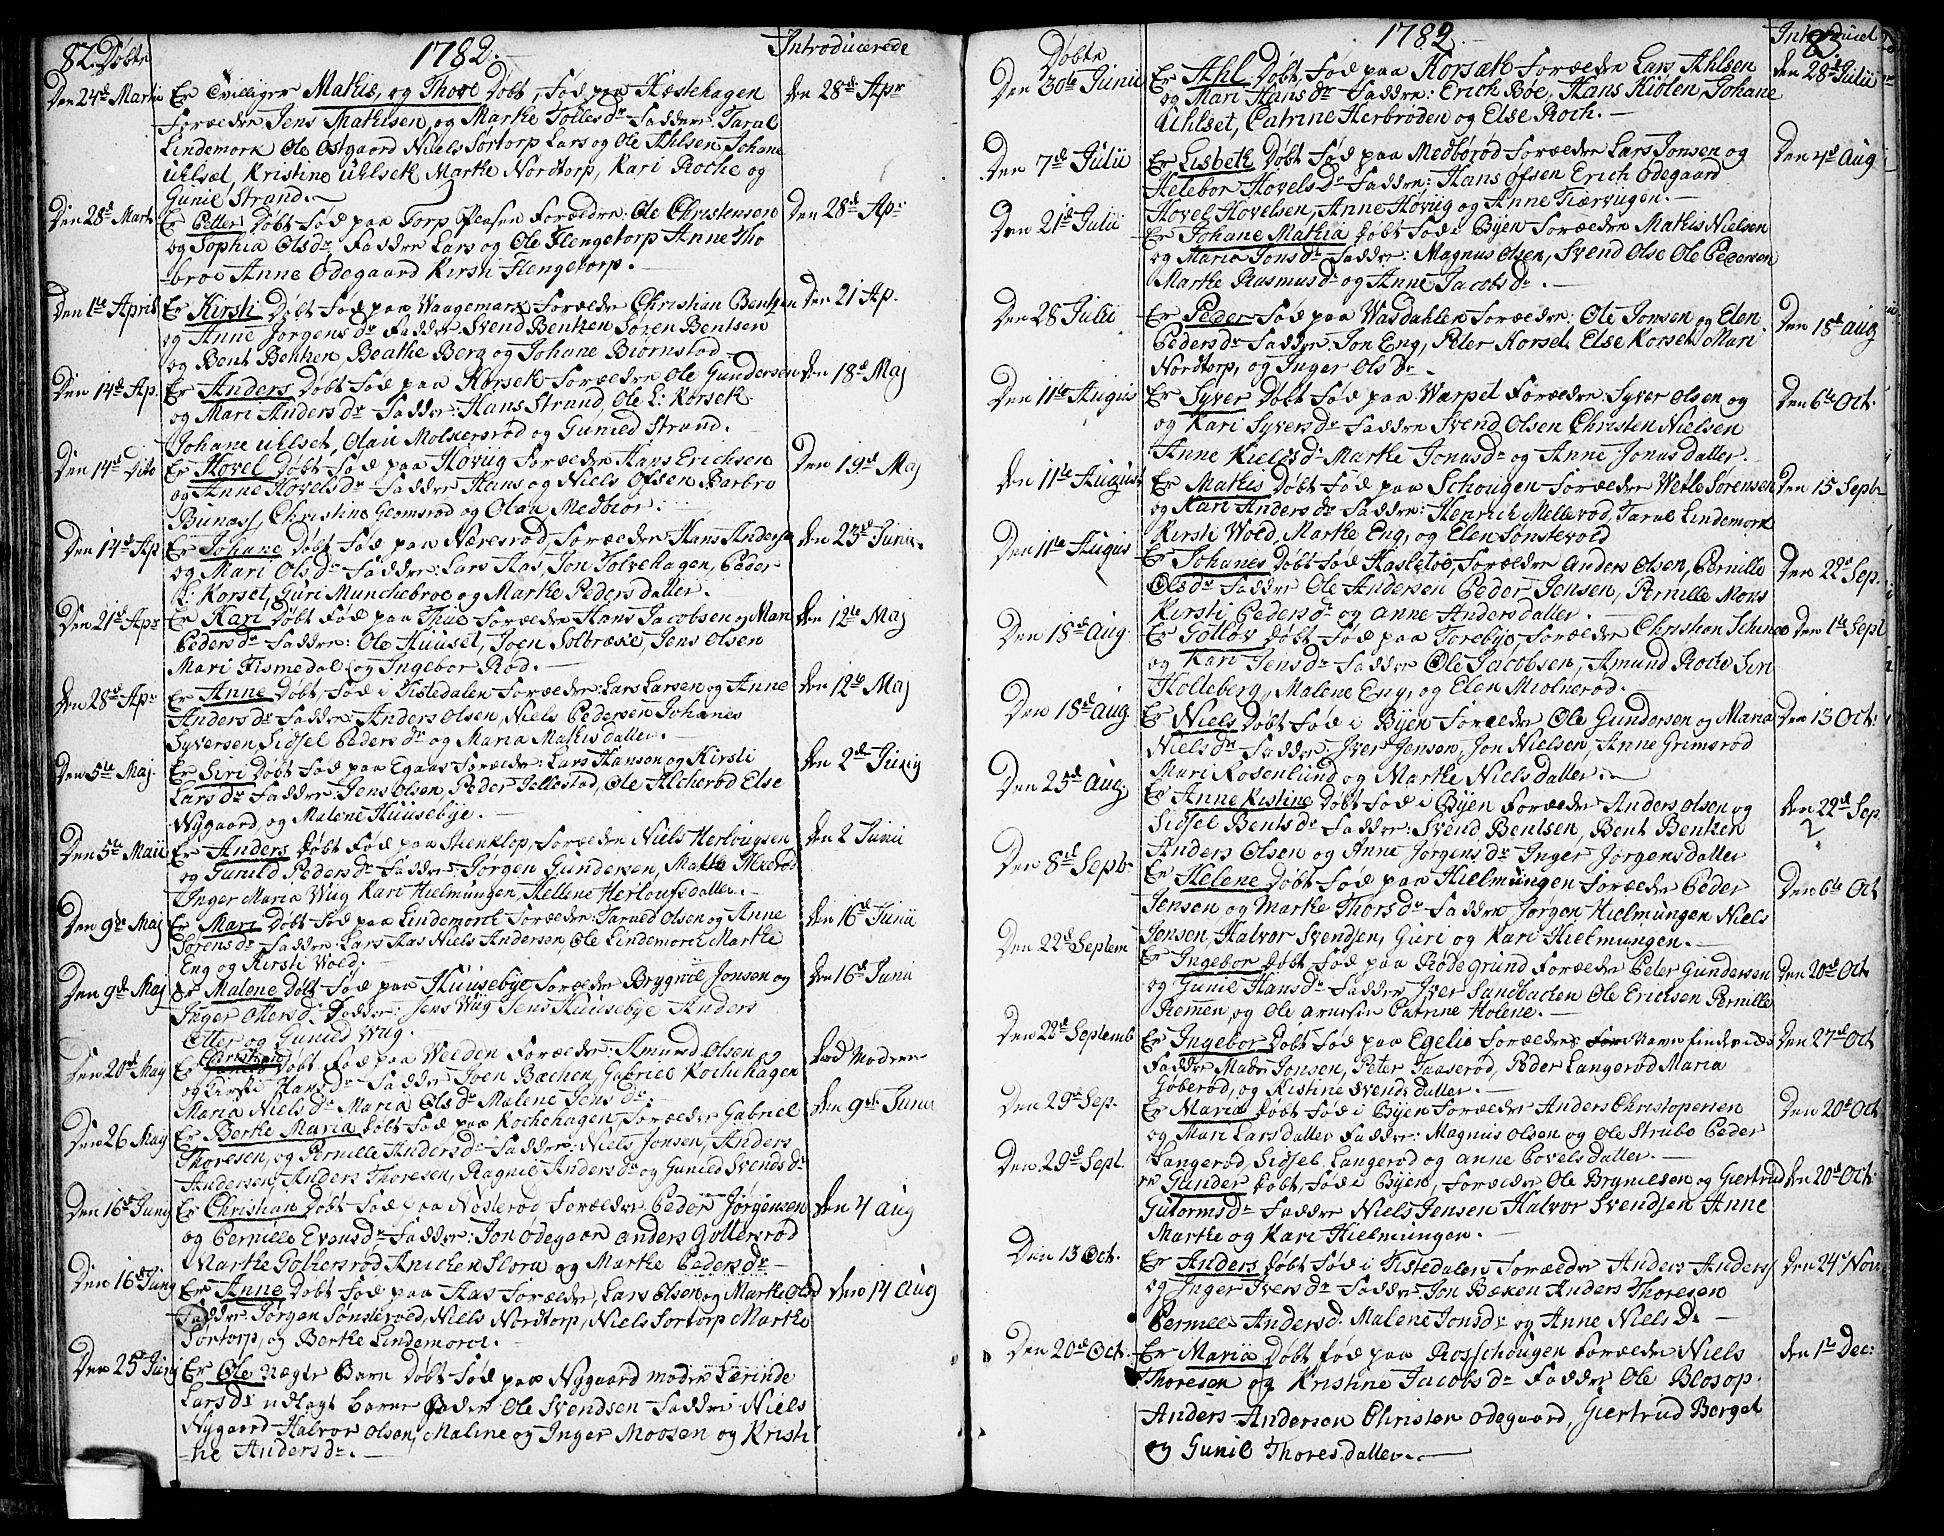 82. Døbte 1782. Introducerede
Den 24de Martii Er Tvillinger Mathis, og Thore Døbt, Fød paa Hæstehagen den 28de Apr
Forældre Jens Mathisen og Marthe Tollesdr Faddere: Taral
Lindemork Ole Ostgaard Niels Sørtorp Lars og Ole Ahlsen Johane
Uhlset, Kristine Uhlseth Marthe Nordtorp, Kari Roche og
Gunil Strand.
Den 28de Mart. Er Petter Døbt Fød paa Torp Forældre: Ole Christensen den 28de Apr
og Sophia Olsdr Faddre Lars og Ole Flengetorp Anne Tho
broe Anne Ødegaard Kirsti Flengetorp.
Den 1te April Er Kirsti Døbt Fød paa Waagemark Forældre Christian Bentzen Den 21 Ap.
og Anne Jørgensdr Faddre Svend Bentzen Søren Bentsen
og Bent Bentzen Beathe Berg og Johane Biørnstad
Den 14de Ap. Er Anders Døbt Fød paa Korseth Forældre Ole Gundersen den 18de Maj
og Mari Andersdr Faddre: Hans Strand, Ole L: Korseth
Johane Uhlset, Olau Molkersrød og Gunild Strand.
Den 14de Dito Er Hovel Døbt Fød paa Høvüg Forældre Hans Erichsen Den 19de Maj
og Anne Hovelsdr Faddre Hans og Niels Ofsen Barbro
Bunæss, Christine Glomsrød og Olau Medboe.
Den 14de Ap Er Johane Døbt Fød paa Næresrød Forældre Hans Andersen den 23de Junii.
og Mari Olsdr Faddre: Lars Aas, Jon Tolvehagen, Peder
P: Korset, Guri Munchebroe og Marthe Pedersdatter.
Den 21de Apr Er Kari Døbt Fød paa Thue Forældre Hans Jacobsen og Mari Den 12te Maj
Pedersdr Faddre: Ole Huuset, Joen Solbræke, Jens Olsen
Mari Fismedal og Ingebor Rød.
den 28de Apr Er Anne Døbt, Fød i Tistedalen Forældre: Lars Larsen og Anne den 12te Maj
Andersdr Faddre: Anders Olsen, Niels Pedersen Johanes
Syversen, Sidsel Pedersdr og Maria Mathisdatter.
Den 5te Maj. Er Siri Døbt Fød paa Egaas Forældre: Lars Hansen og Kirsti den 2de Junij
Larsdr Faddre: Jens Olsen, Peder Jellestad, Ole Alcherød Else
Nygaard, og Malene Huusebye.
Den 5te Maii Er Anders Døbt Fød paa Steenklop, Forældre Niels Herlougsen Den 2 Junii
og Gunild Pedersdr Faddre: Jørgen Gundersen, Mathe
Inger Maria Wüg Kari Hielmüngen, Hellene Herloufsdatter.
Den 9de Maj Er Mari Døbt Fød paa Lindemorck Forældre: Tarald Olsen og Anne den 16de Junii
Sørensdr Faddre: Lars Aas Niels Andersen, Ole Lindemorch Marthe
Eng og Kirsti Wold.
Den 9de Maj er Malene Døbt Fød paa Huusebye Forældre Brygniel Jonsen og Den 16de Junii
Inger Ottersd: Fadder: Jens Wüg Jens Huusebye Anders
Otter og Gunild Wüg.
Den 20de May Er Døbt Fød paa Weeden Forældre: Amund Olsen død Moder
og Kirsti Hansdr Faddre Joen Bæchen, Gabriel Kochehagen
Maria Nielsdr Maria Olsdr Malene Jensdr.
Den 26 May Er Berthe Maria Døbt Fød paa Kochehagen, Forældre Gabriel Den 9de Junii
Thoresen, og Pernille Andersdr Faddere: Niels Jonsen, Anders
Andersen, Anders Thoresen, Ragnil Andersdr og Gunild Svendsdr
Den 16de Junij Er Christian Døbt Fød paa Nøsterød Forældre Peder Jørgensen Den 4 Aug
og Pernille Evensdr Faddre: Jon Ødegaar Anders Gottersrød
Marthe Gothersrød Anichen Flora og Marthe Pedersdr
Den 16de Junij Er Anne Døbt Fød paa Aas Forældre, Lars Olsen og Marthe Olsd den 14 Aug
Faddre: Jørgen Sønstevold, Niels Nordtorp, Niels Sortorp Marthe
Sørtorp, og Berthe Lindemorck.
Den 25de Junij Er Ole uægte Barn Døbt Fød paa Nygaard moder Lærinde
Larsdr udlagt barne fader Ole Svendsen Faddre Niels
Nygaard Halvor Olsen, Malene og Inger Moosen og Kristi
ne Andersdr.
Døbte 1782. Introduced
Den 30te Junii Er Ahl Døbt Fød paa Korsæth Forældre Lars Ahlsen den 28de Julii
og Mari Hansdr Faddre: Erich Boe, Hans Kiølen, Johane
Uhlset, Catrine Herbrøden og Else Roch.
Den 7de Julii Er Lisbeth Døbt Fød paa Medborød Forældre Lars Jonsen og Den 4de Aug
Helebor Hovelsdr Faddre: Hans Ofsen Erich Ødegaard
Hovel Hovelsen, Anne Høvüg og Anne Tiærvigen.
Den 21de Julii Er Johane Mathia Døbt Fød i Byen Forældre Mathis Nielsen
og Maria Jonsdr Faddre: Magnus Olsen, Svend Olse Ole Pedersen
Marthe Rasmusdr og Anne Jacobsdr.
Den 28 Julii Er Peder Fød paa Wasdahlen Forældre: Ole Jonsen og Elen Den 18de Aug
Pedersdr Faddre: Jon Eng, Peter Korset, Else Korset Mari
Nordtorp, og Inger Olsdr
Den 11te Augus Er Syver Døbt Fød paa Warpet Forældre Syver Olsen og Den 6te Oct:
og Kari Syversdr Faddre Svend Olsen Christen Nielsen
Anne Kieldsdr Marthe Jonusdr og Anne Jonusdatter.
den 11te August Er Mathis Døbt Fød paa Schougen Forældre Wetle Sørensen Den 15 Septr
og Kari Andersdr Faddre: Henrich Mellerød, Taral Lindemork
Kirsti Wold, Marthe Eng, og Elen Sønstevold
Den 11te Augus Er Johanes Døbt Fød Hasletoe, Forældre Anders Olsen, Pernille Den 22de Sep.
Olsdr Faddre Ole Andersen Peder Jensen, Pernille Mons
Kirsti Pedersdr og Anne Andersdatter.
Den 18de Aug: Er Gollov Døbt Fød paa Torebye Forældre Christian Schinoe Den 1te Sept
og Kari Jensdr Faddre Ole Jacobsen, Amund Roche Siri
Holleberg, Malene Eng, og Elen Miølnerød.
Den 18de aug. Er Niels Døbt Fød i Byen Forældre Ole Gundersen og Maria Den 13 Oct:
Nielsdr Faddre: Iver Jensen, Jon Nielsen, Anne Grimsrød
Mari Rosenlund og Marthe Nielsdatter.
Den 25de Aug. Er Anne Kistine Døbt Fød i Byen Forældre Anders Olsen og den 22de Sep.
Sidsel Bentsdr Faddre: Svend Bentsen, Bent Bentzen
Anders Olsen og Anne Jørgensdr Inger Jørgensdatter
Den 8de Septr Er Helene Døbt Fød paa Hielmüngen Forældre Peder Den 6te Oct
Jensen og Marthe Thorsdr Faddre Jørgen Hielmüngen Niels
Jensen, Halvor Svendsen, Guri og Kari Hielmüngen.
Den 22de Septem Er Ingebor Døbt Fød paa Rødegrund Forældre Peter Gundersen Den 20de Oct
og Gunil Hansdr Faddre Iver Sandbachen Ole Erichsen Pernille
Remen, og Ole Arnesen Catrine Holene.
Den 22de Septemb Er Ingebor Døbt Fød paa Egelie Forældres Navn findes ikke Den 27de Oct
Faddre Mads Jonsen, Peter Taaserød, Peder Langerød Maria
Goberød, og Kistine Svendsdatter.
Den 29de Sep. Er Maria Døbt Fød i Byen Forældre Anders Christopersen Den 20de Oct
og Mari Larsdatter Faddre: Magnus Olsen og Ole Strubo Peder
Langerød, Sidsel Langerød og Anne Povelsdatter.
Den 29de Sept. Er Gunder Døbt, Fød i Byen, Forældre Ole Brynielsen og Giertrud den 20de Oct:
Gutormsdr Faddre Niels Jensen Halvor Svendsen Anne
Marthe og Kari Hielmüngen.
Den 13 Oct. Er Anders Døbt Fød i Tistedalen Forældre Anders Anders Den 24de Nov
og Inger Iversdr Faddre Jon Bæken Anders Thoresen
Pernille Andersd. Malene Jonsdr og Anne Nielsd.
Den 20de Oct. Er Maria Døbt Fød paa Rosschougen Forældre Niels den 1te Dec:
Thoresen og Kristine Jacobsdr Faddre Ole Blosop.
Anders Andersen Christen Ødegaard, Giertrud Berget
og Gunil Thoresdatter.